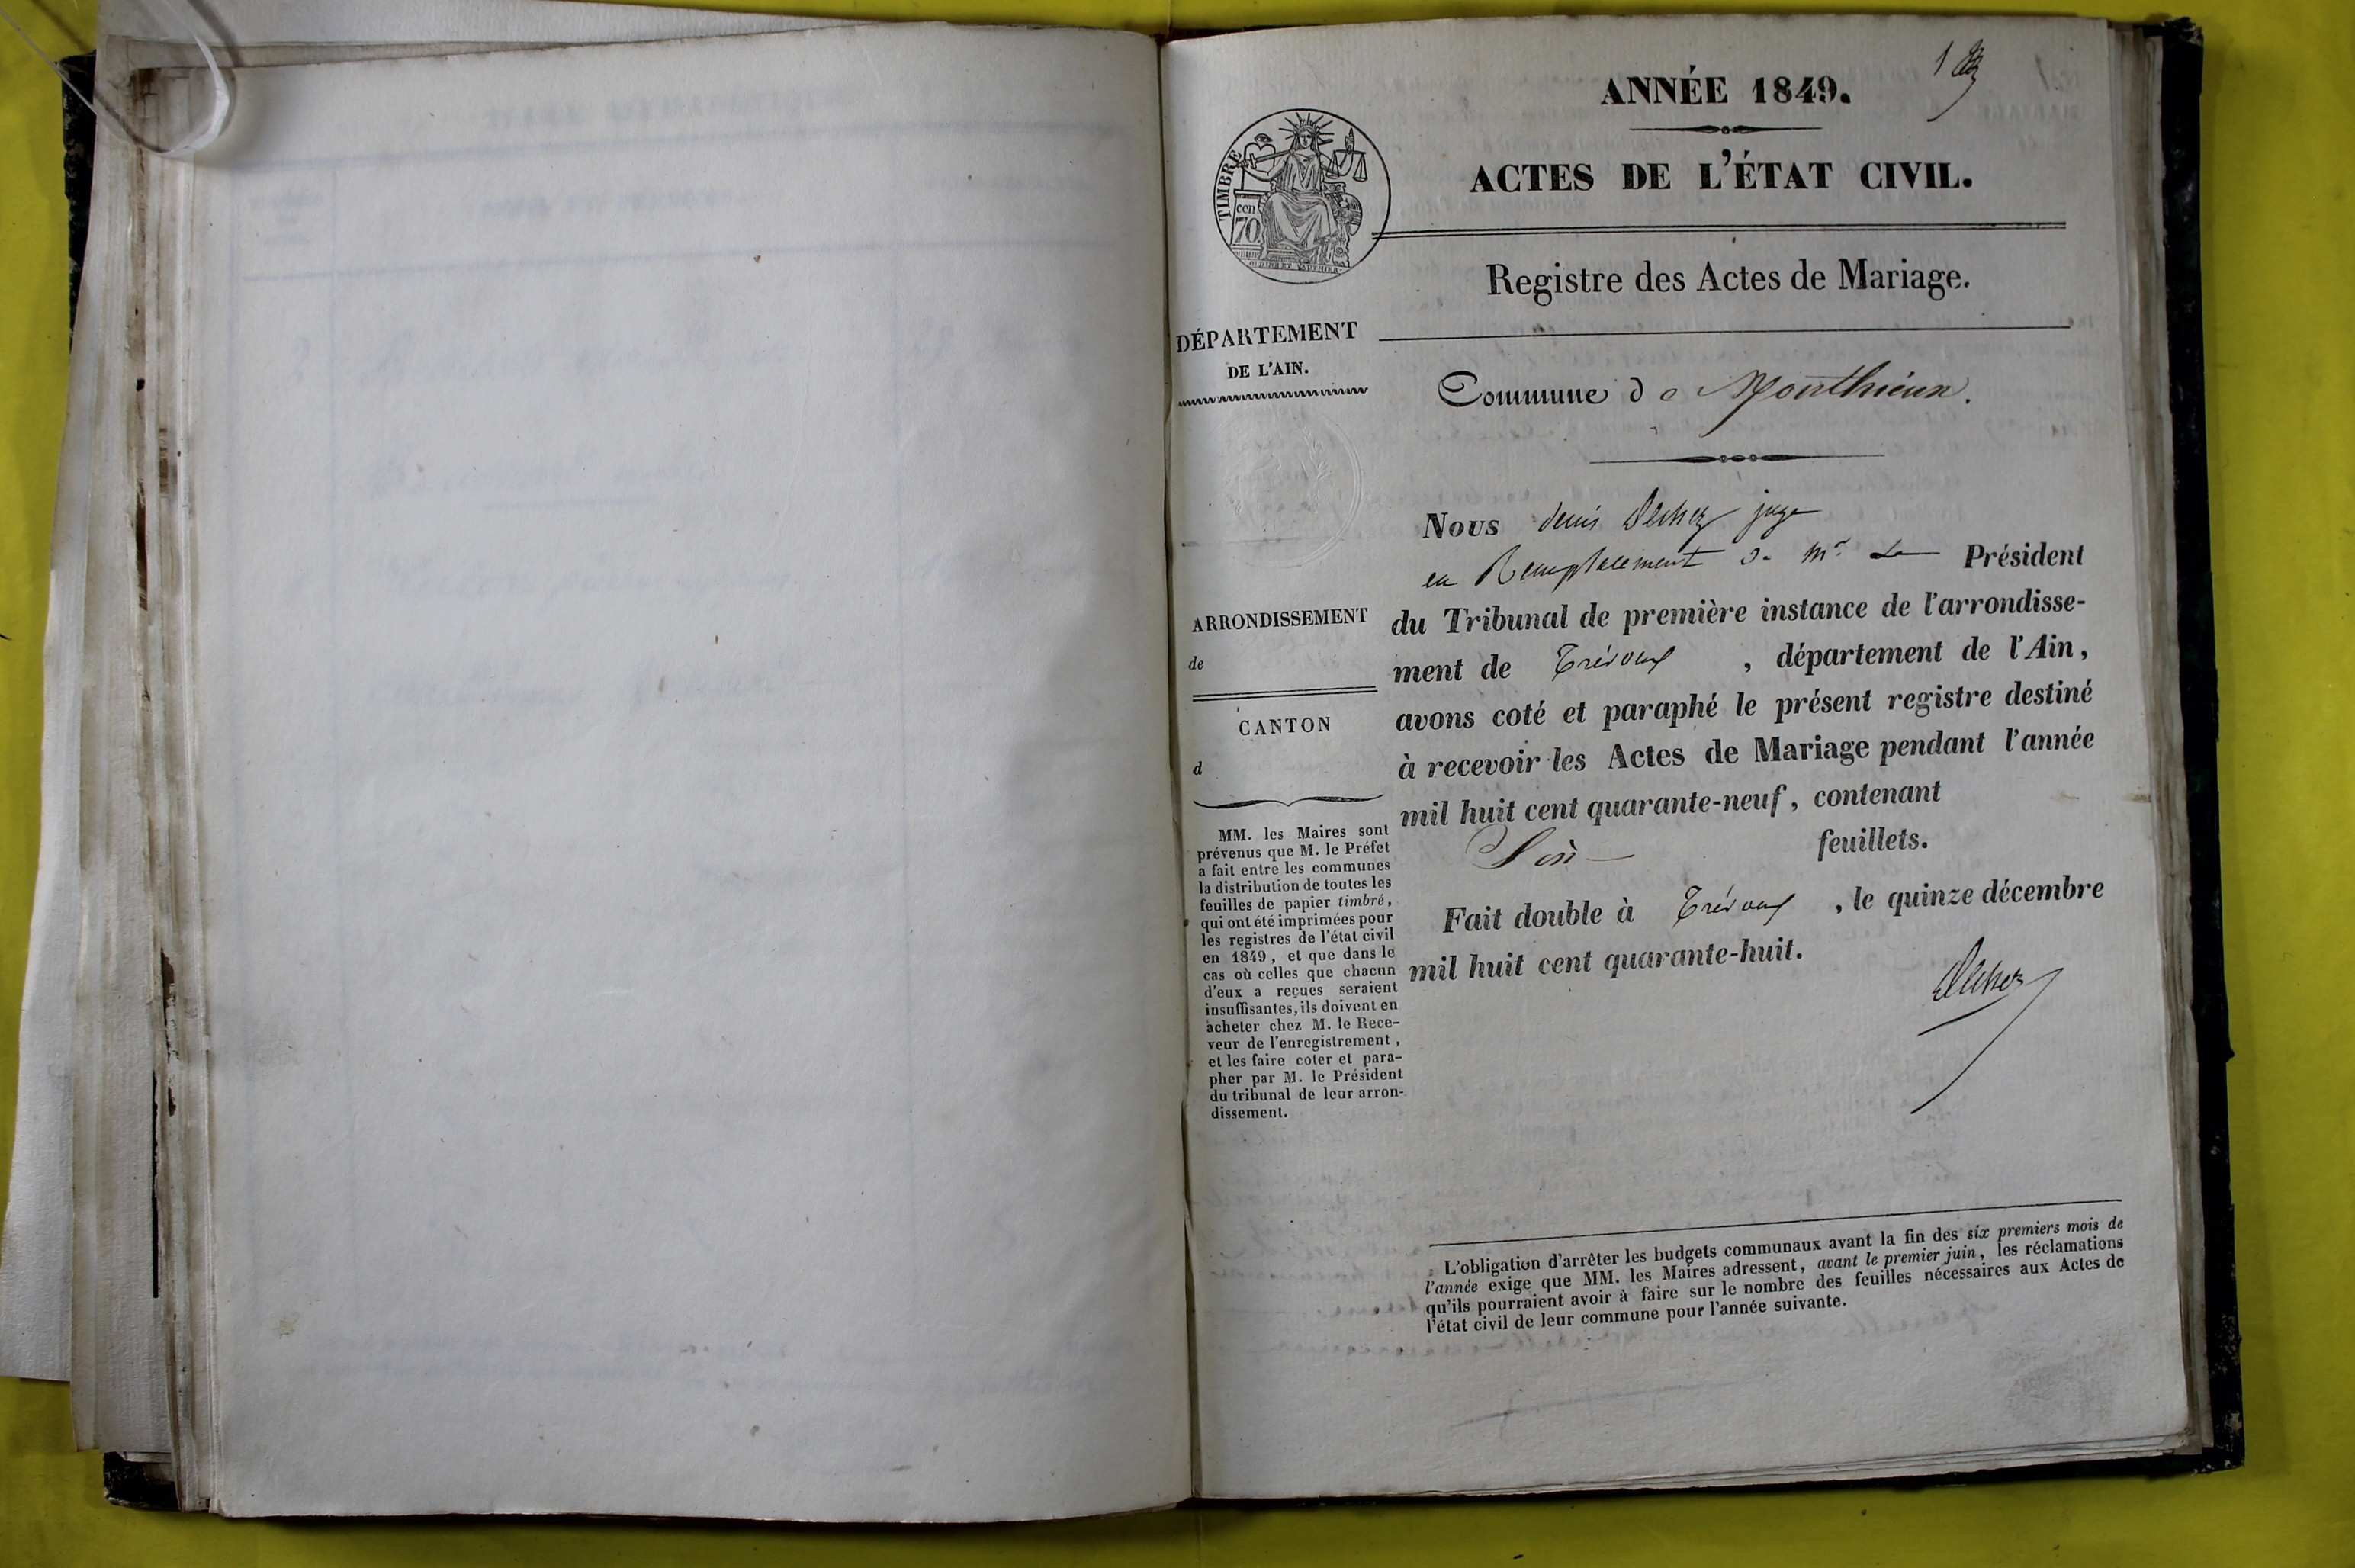 1
ANNÉE 1849.
ACTES DE L'ÉTAT CIVIL.
TIMBRE
cen
70
Registre des Actes de Mariage.
DÉPARTEMENT
DE L'AIN.
Commune de Monthieux.
Nous denis juge
en Remplacement de Mr Le Président
du Tribunal de première instance de l'arrondisse-
ment de Trévoux , département de l'Ain,
avons coté et paraphé le présent registre destiné
à recevoir les Actes de Mariage pendant l'année
mil huit cent quarante-neuf, contenant
feuillets.
Fait double à Trévoux , le quinze décembre
mil huit cent quarante-huit.
ARRONDISSEMENT
de
CANTON
d
MM. les Maires sont
prévenus que M. le Préfet
a fait entre les communes
la distribution de toutes les
feuilles de papier timbré,
qui ont été imprimées pour
les registres de l'état civil
en 1849, et que dans le
cas où celles que chacun
d'eux a reçues seraient
insuffisantes, ils doivent en
acheter chez M. le Rece-
veur de l'enregistrement,
et les faire coter et para-
pher par M. le Président
du tribunal de leur arron-
dissement.
L'obligation d'arrêter les budgets communaux avant la fin des six premiers mois de
l'année exige que MM. les Maires adressent, avant le premier juin, les réclamations
qu'ils pourraient avoir à faire sur le nombre des feuilles nécessaires aux Actes de
l'état civil de leur commune pour l'année suivante.